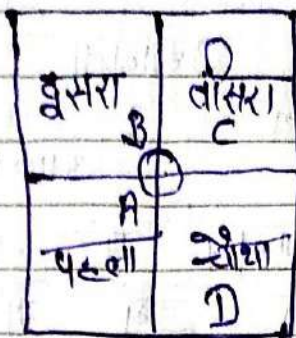 दूसरा
B
तीसरा
C
A
पहला
चौथा
D